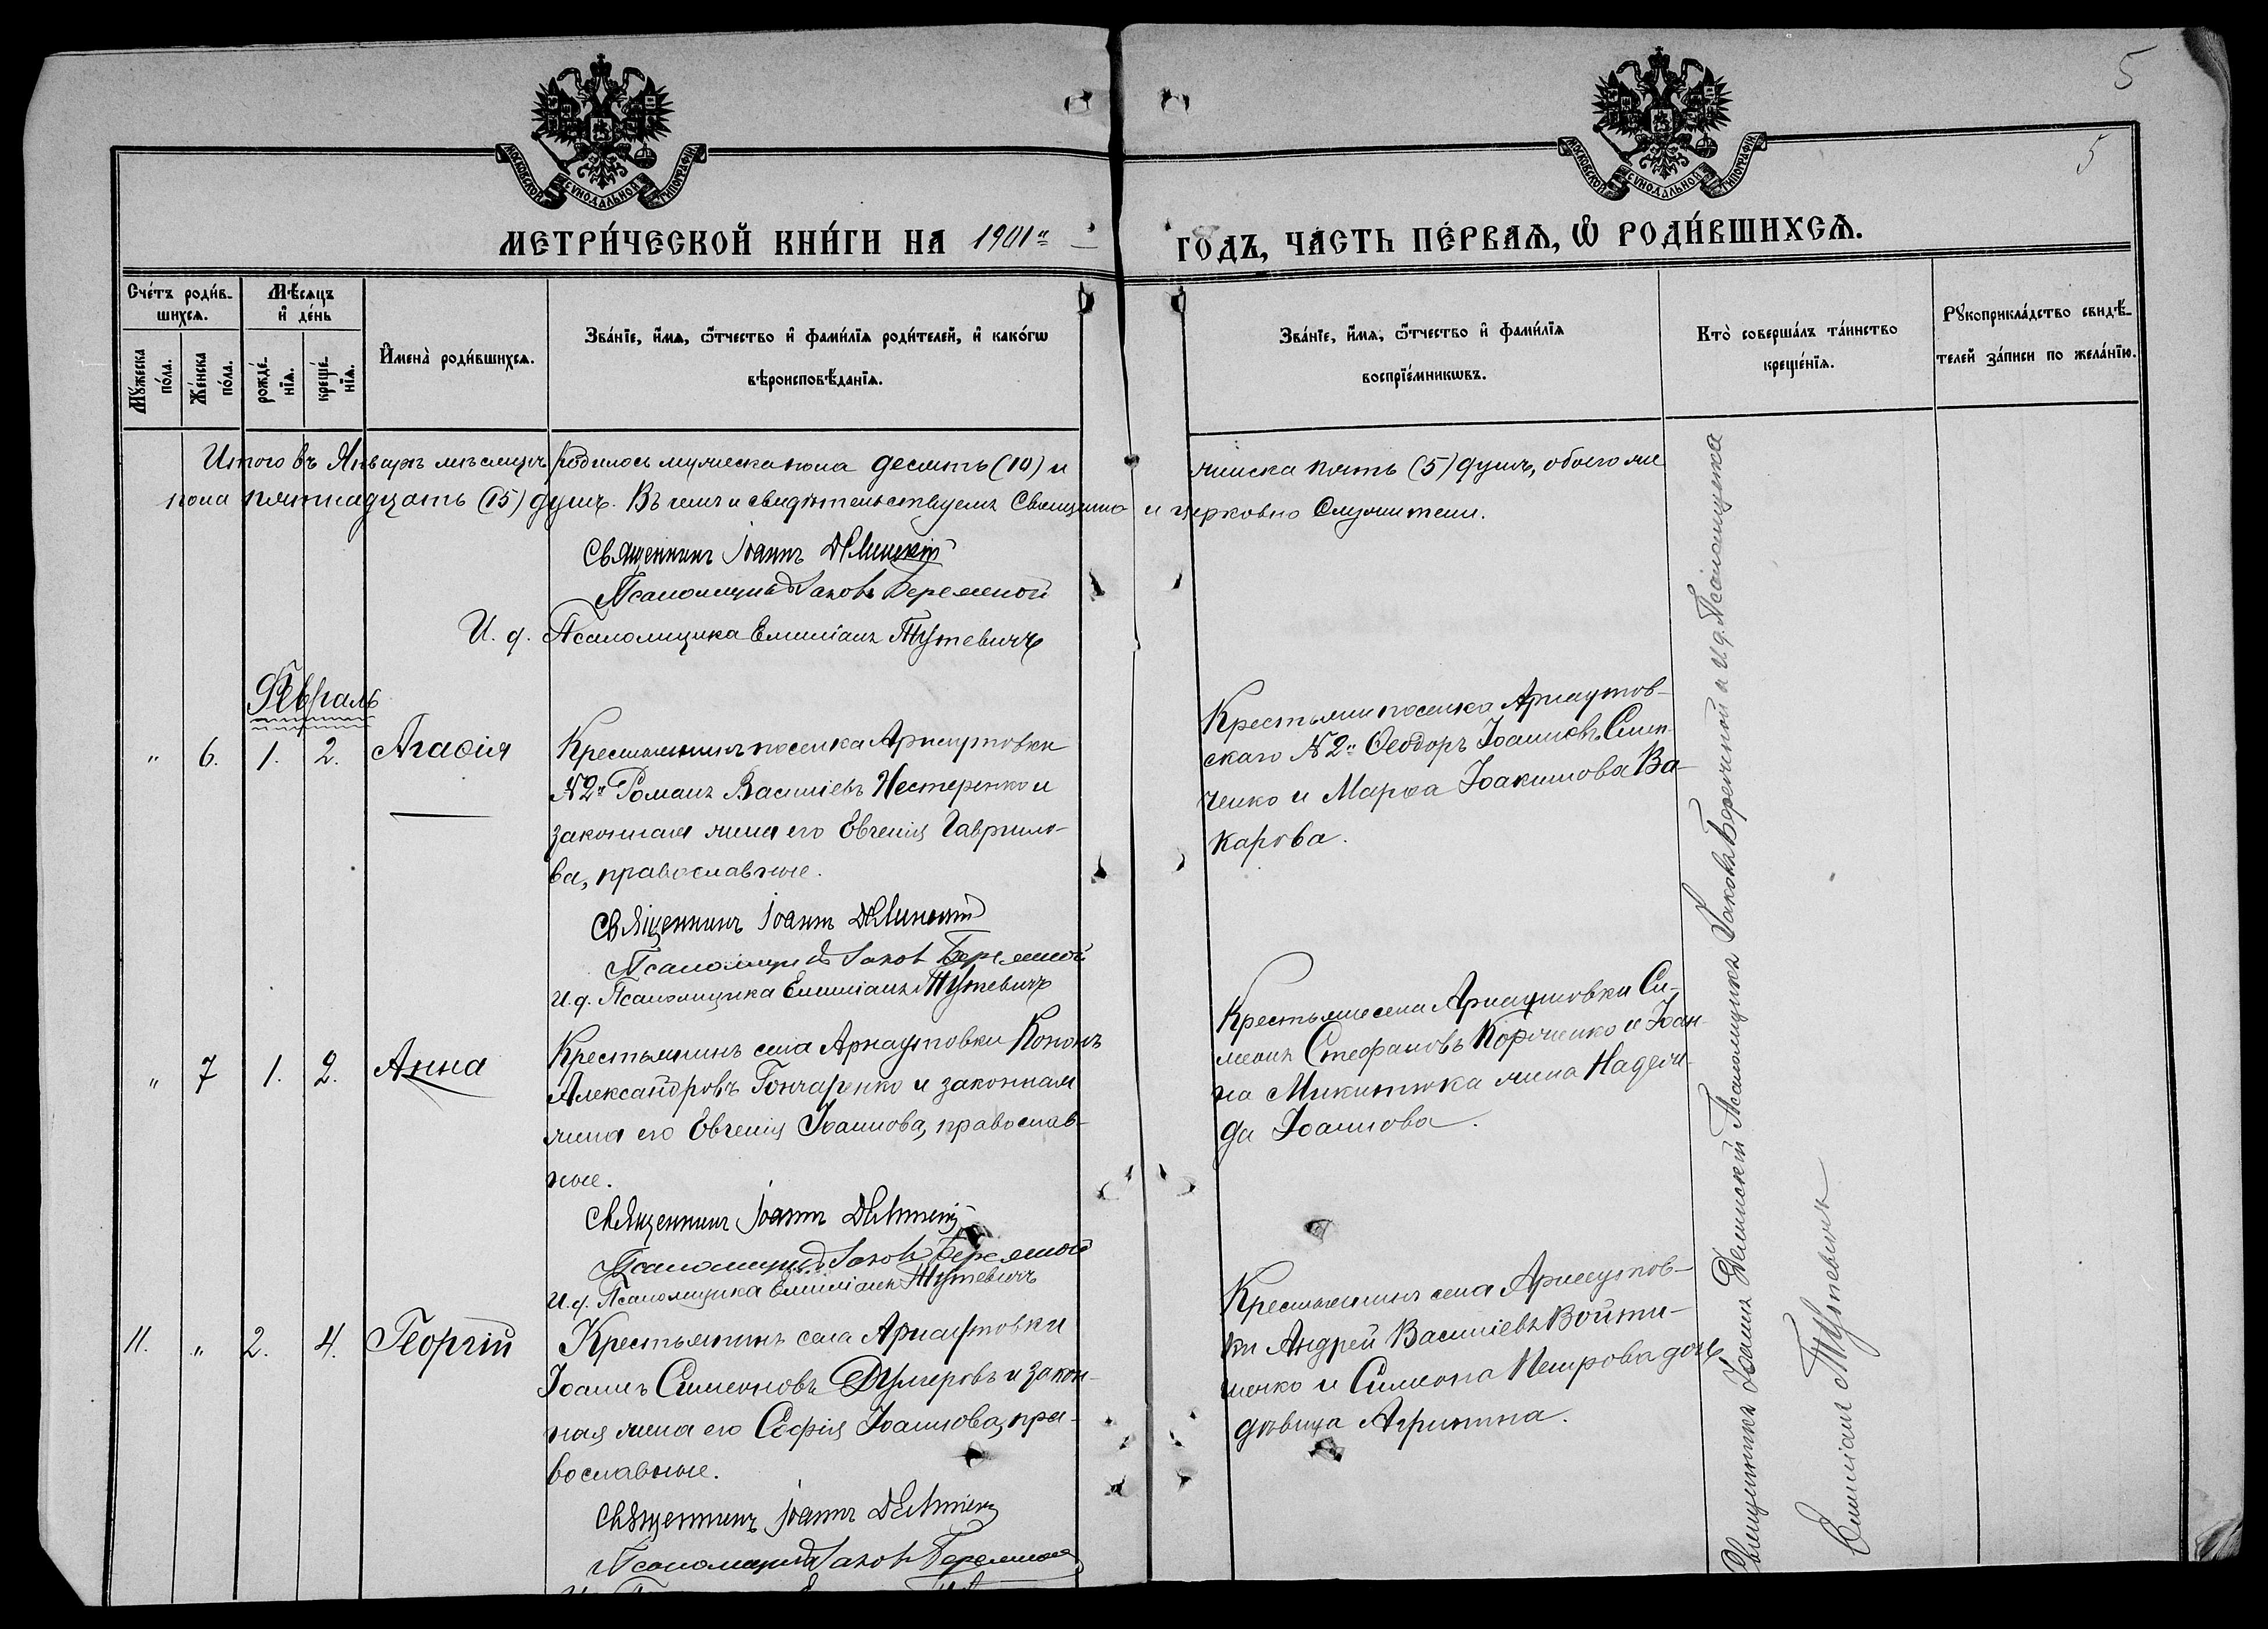 5
5
МОСКОВСКОЙ СѴНОДАЛЬНОЙ ТИПОГРАФІИ
МОСКОВСКОЙ СѴНОДАЛЬНОЙ ТИПОГРАФІИ
МЕТРИ́ЧЕСКОЙ КНИ́ГИ НА 1901й ГОДЪ, ЧА́СТЬ ПЕ́РВАѦ, Ѽ РОДИ́ВШИХСѦ.
Сче́тъ роди́в-
шихсѧ.
Мꙋ́жеска
по́ла.
Же́нска
по́ла.
Мѣ́сѧцъ
и҆ де́нь
рожде́-
нїѧ.
креще́-
нїѧ.
И҆мена̀ роди́вшихсѧ.
Зва́нїе, и҆́мѧ, ѻ҆́тчество и҆ фами́лїѧ роди́телей, и҆ како́гѡ
вѣроисповѣ́данїѧ.
Зва́нїе, и҆́мѧ, ѻ҆́тчество и҆ фами́лїѧ
воспрїе́мникѡвъ.
Кто̀ соверша́лъ та́инство
креще́нїѧ.
Рꙋкоприкла́дство свидѣ́-
телей за́писи по жела́нїю.
Итого въ Январѣ мѣсяцѣ родилось мужеска пола десять (10) и женска пять (5) душъ, обоего же
пола пятнадцать (15) душъ. Въ чемъ и свидѣтельствуемъ Священно и церковно служители.
Священникъ Іоаннъ Демискій
Псаломщикъ Іаковъ Бережной
И. д. Псаломщика Емиліанъ Тутевичъ
Февраль
" 6. 1. 2. Агаѳія
Крестьянинъ поселка Арнаутовки
№2й Романъ Василіевъ Нестеренко и
законная жена его Евгенія Гаврило-
ва, православные.
Священникъ Іоаннъ Демискій
Псаломщикъ Іаковъ Бережной
И. д. Псаломщика Емиліанъ Тутевичъ
Крестьяне поселка Арнаутов-
скаго №2й Ѳеодоръ Іоанновъ
и Марѳа Іоакимова Ва-
карова.
" 7 1. 2. Анна
Крестьянинъ села Арнаутовки Кононъ
Александровъ Гончаренко и законная
жена его Евгенія Іоаннова, православ-
ные.
Священникъ Іоаннъ Демискій
Псаломщикъ Іаковъ Бережной
И. д. Псаломщика Емиліанъ Тутевичъ
Крестьяне села Арнаутовки Си-
меонъ Стефановъ Корченко и Іоан-
на Микитюка жена Надеж-
да Іоаннова.
11. " 2. 4. Георгій
Крестьянинъ села Арнаутовки
Іоаннъ Симеоновъ Дулгеровъ и закон-
ная жена его Софія Іоаннова, пра-
вославные.
Священникъ Іоаннъ Демискій
Псаломщикъ Іаковъ Бережной
Крестьянинъ села Арнаутов-
ки Андрей Василіевъ Войти-
шенко и Симеона Петрова дочь
дѣвица Агрипина.
Священникъ Іоаннъ Демискій Псаломщикъ Іаковъ Бережной и И. д. Псаломщика
Емиліанъ Тутевичъ